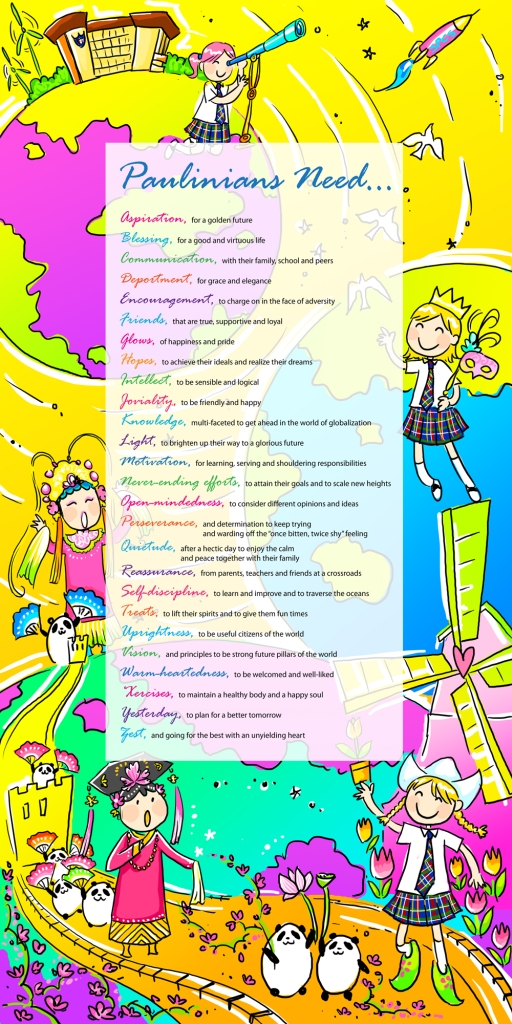 Paulinians Need...
Aspiration, for a golden future
Blessing, for a good and virtuous life
Communication, with their family, school and peers
Deportment, for grace and elegance
Encouragement, to charge on in the face of adversity
Friends, that are true, supportive and loyal
Glows, of happiness and pride
Hopes, to achieve their ideals and realize their dreams
Intellect, to be sensible and logical
Joviality, to be friendly and happy
Knowledge, multi-faceted to get ahead in the world of globalization
Light, to brighten up their way to a glorious future
Motivation, for learning, serving and shouldering responsibilities
Never-ending efforts, to attain their goals and to scale new heights
Open-mindedness, to consider different opinions and ideas
Perseverance, and determination to keep trying
and warding off the "once bitten, twice shy" feeling
Quietude, after a hectic day to enjoy the calm
and peace together with their family
Reassurance, from parents, teachers and friends at a crossroads
Self-discipline, to learn and improve and to traverse the oceans
Treats, to lift their spirits and to give them fun times
Uprightness, to be useful citizens of the world
Vision, and principles to be strong future pillars of the world
Warm-heartedness, to be welcomed and well-liked
Xercises, to maintain a healthy body and a happy soul
Yesterday, to plan for a better tomorrow
Zest, and going for the best with an unyielding heart